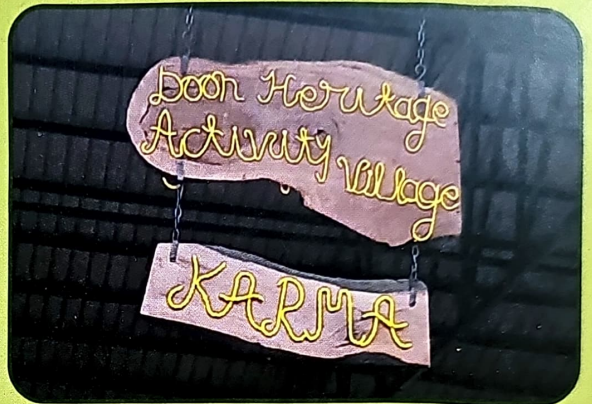 Doon Heritage
Activity Village
KARMA